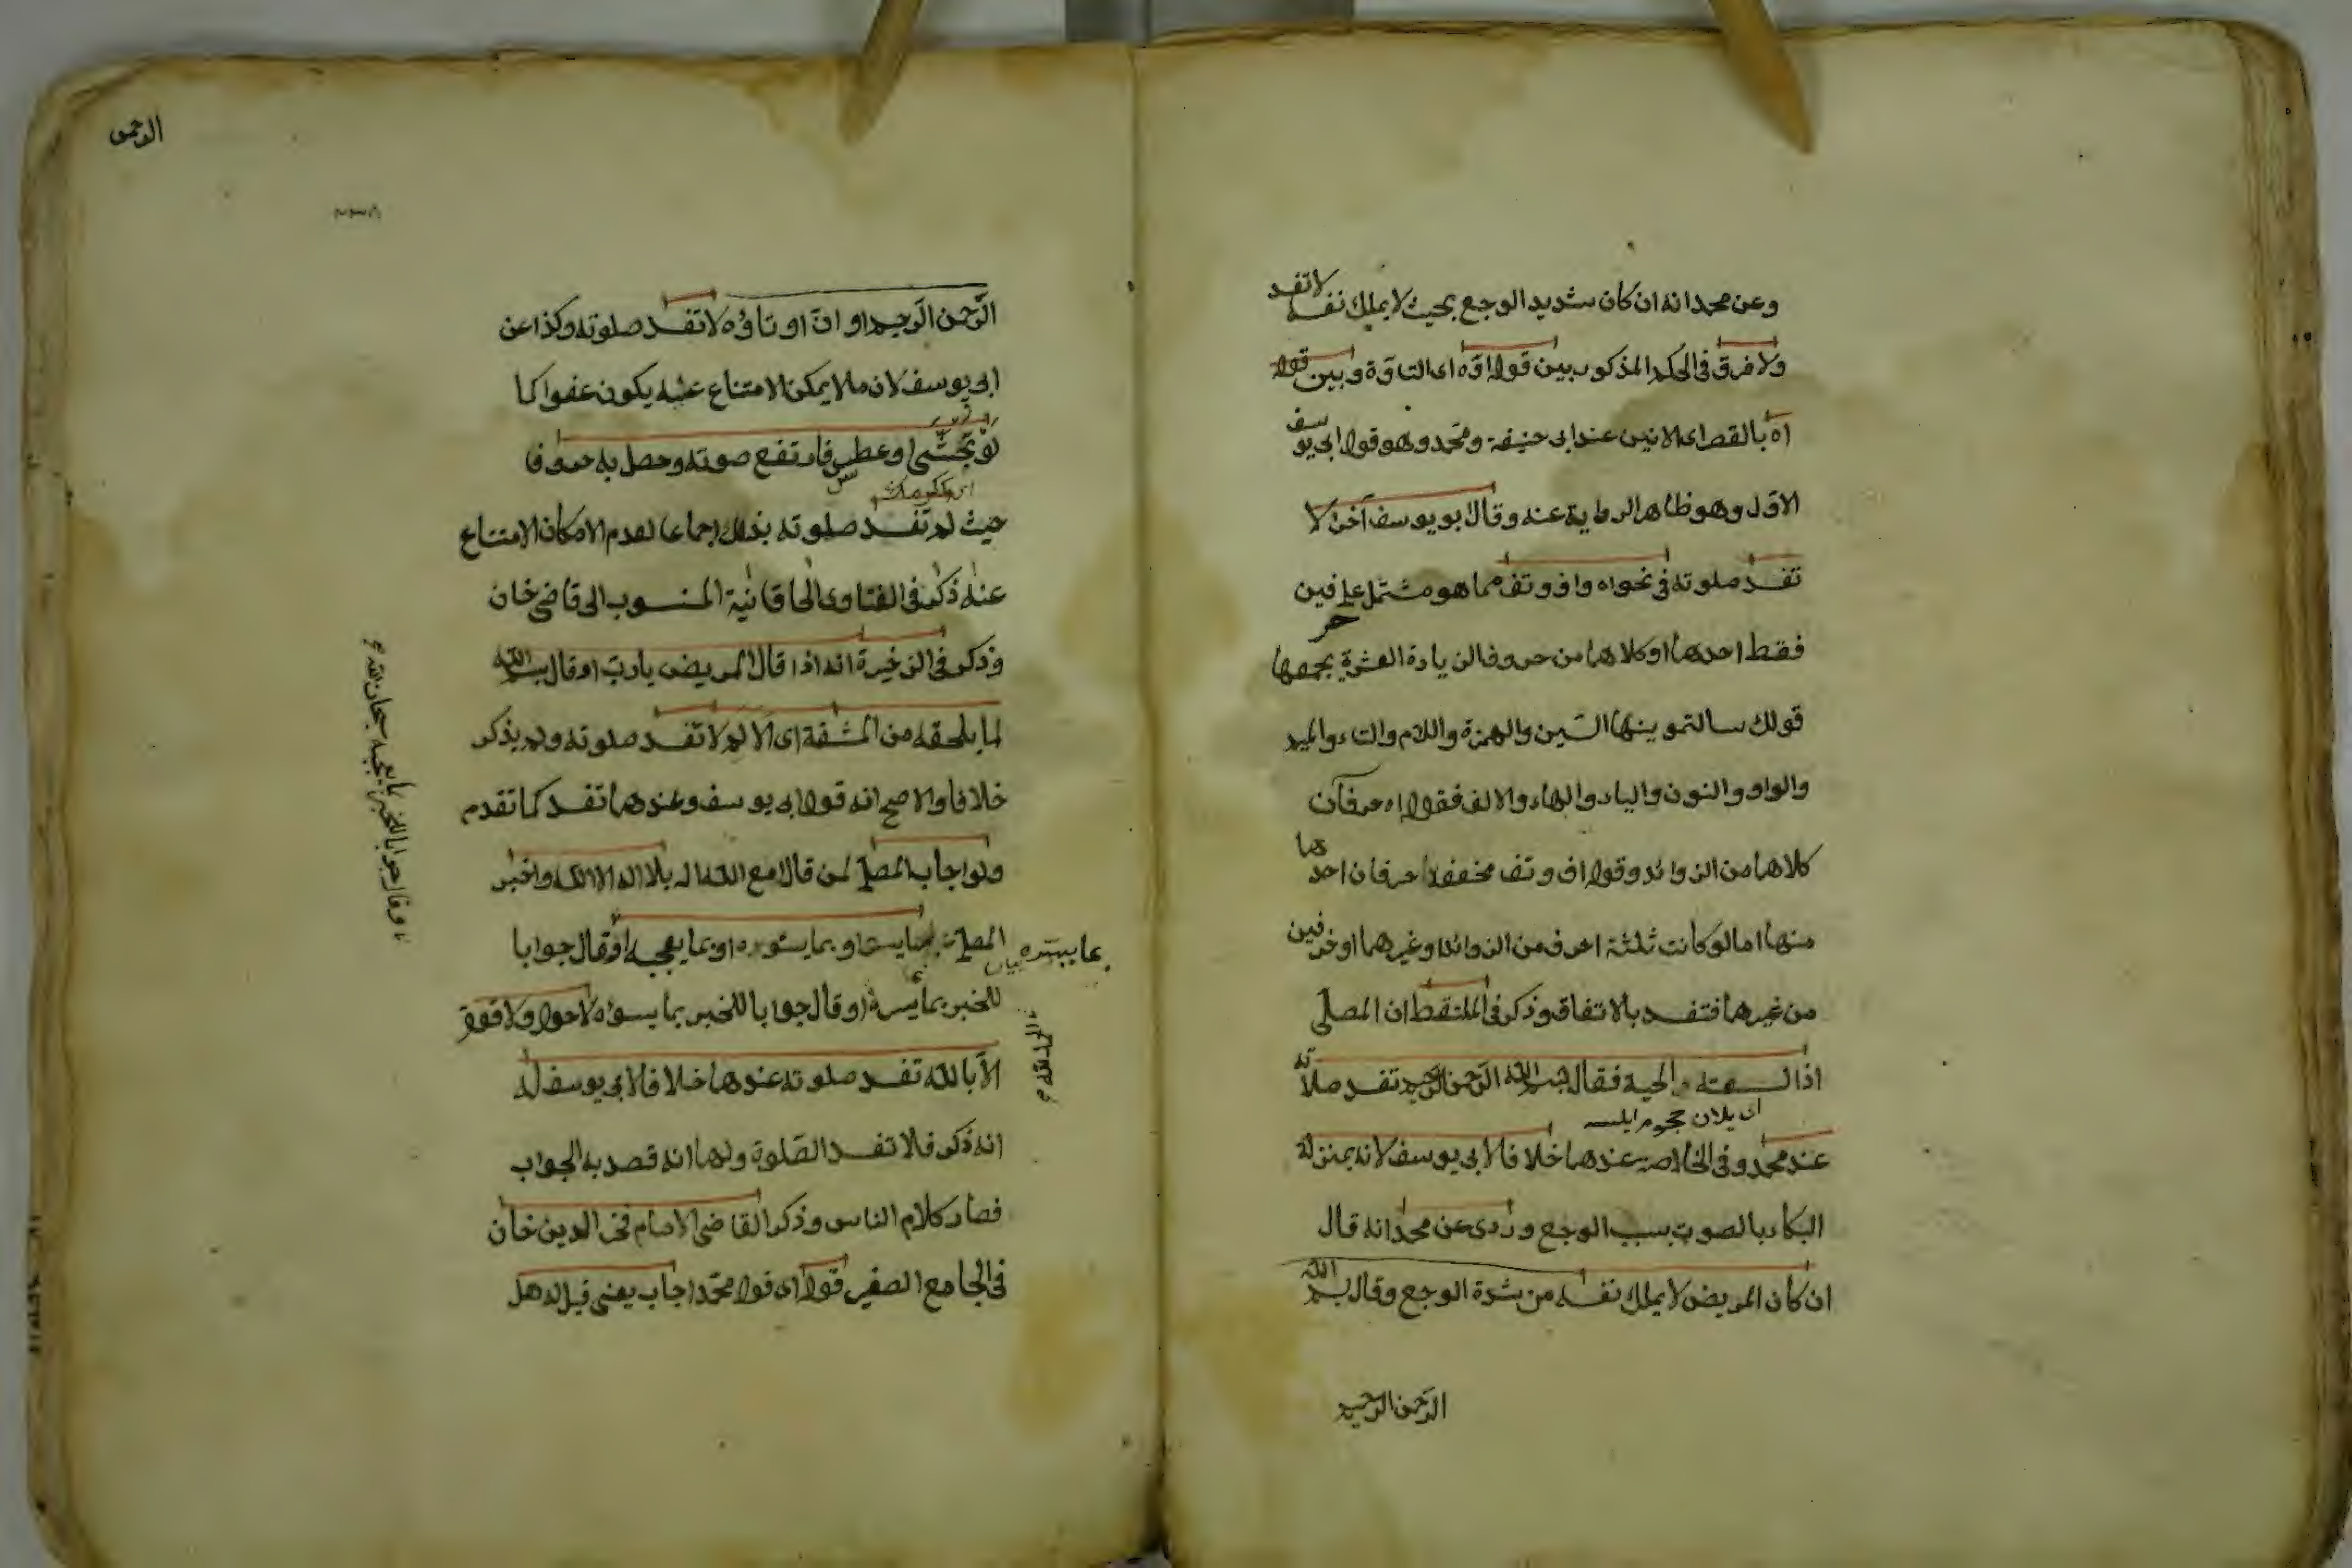 وعن محمد انه ان كان شديد الوجع بحيث لا يملك نفسه لا تفسد
ولا فرق فى الحكم المذكور بين قوله اوّه اى التاوّه وبين قوله
اه بالقصر اى الانين عند ابى حنيفة ومحمد وهو قول ابى يوسف
الاول وهو ظاهر الرواية عنه وقال ابو يوسف آخرا لا
تفسد صلوته فى نحو اه واف وتف مما هو مشتمل على حرفين
فقط احدهما او كلاهما من حروف الزيادة العشرة يجمعها
قولك سالتمونيها السّين والهمزة واللام والتاء والميم
والواو والنون والياء والهاء والالف فقوله اه حرفان
كلاهما من الزوائد وقوله اف وتف مخففة حرفان احدهما
منها اما لو كانت ثلثة احرف من الزوائد او غيرهما او حرفين
من غيرهما فتفسد بالاتفاق وذكر فى الملتقط ان المصلّى
اذا لسعته الحية فقال بسم الله الرّحمن الرّحيم تفسد صلاته
عند محمد وفى الخلاصة عندهما خلافا لابى يوسف لانه بمنزلة
البكاء بالصوت بسبب الوجع وروى عن محمد انه قال
ان كان المريض لا يملك نفسه من شدة الوجع وقال بسم الله
الرّحمن الرّحيم
الرّحمن الرّحيم او انّ او تاوّه لا تفسد صلوته وكذا عن
ابى يوسف لان ما لا يمكن الامتناع عنه يكون عفوا كما
لو تجشّى او عطس فارتفع صوته وحصل به حروف
حيث لم تفسد صلوته بذلك اجماعا لعدم الامكان الامتناع
عنه ذكره فى الفتاوى الخاقانية المنسوب الى قاضى خان
وذكر فى الذخيرة انه اذا قال المريض يا ربّ او قال بسم الله
لما يلحقه من المشقة اى الالم لا تفسد صلوته ولم يذكر
خلافا والاصح انه قول ابى يوسف وعندهما تفسد كما تقدم
ولو اجاب المصلّى لمن قال امع الله اله بلا اله الا الله واخبر
المصلى بما يسره او بما يسوءه او بما يعجبه او قال جوابا
للخبر بما يسره او قال جوابا للخبر بما يسوؤه لا حول ولا قوة
الّا بالله تفسد صلوته عندهما خلافا لابى يوسف له
انه ذكر فلا تفسد الصّلوة ولهما انه قصد به الجواب
فصار كلام الناس وذكر القاضى الامام فخر الدين خان
فى الجامع الصغير قوله اى قول محمّد اجاب يعنى قيل له هل
الحمد لله
او قال جوابا للخبر بما يعجبه سبحان الله